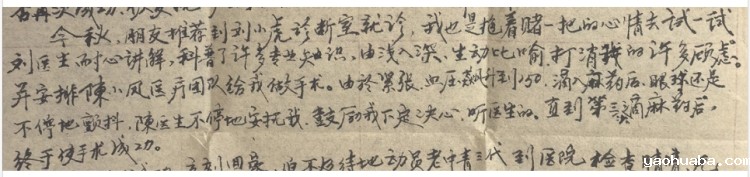 今秋，朋友推荐到刘小虎诊断室就诊，我也是抱着赌一把的心情去试一试
刘医生耐心讲解，科普了许多专业知识，由浅入深、生动比喻，打消我的许多顾虑。
并安排陳小凤医疗团队给我做手术。由於紧张，血压升到150，滴入麻药后，眼球还是
不停地颤抖，陳医生不停地安抚我，鼓励我下定决心，听医生的。直到第三滴麻药后，
终于使手术成功。
回家，迫不及待地动员老中青三代到医院检查
yaohuaba.com